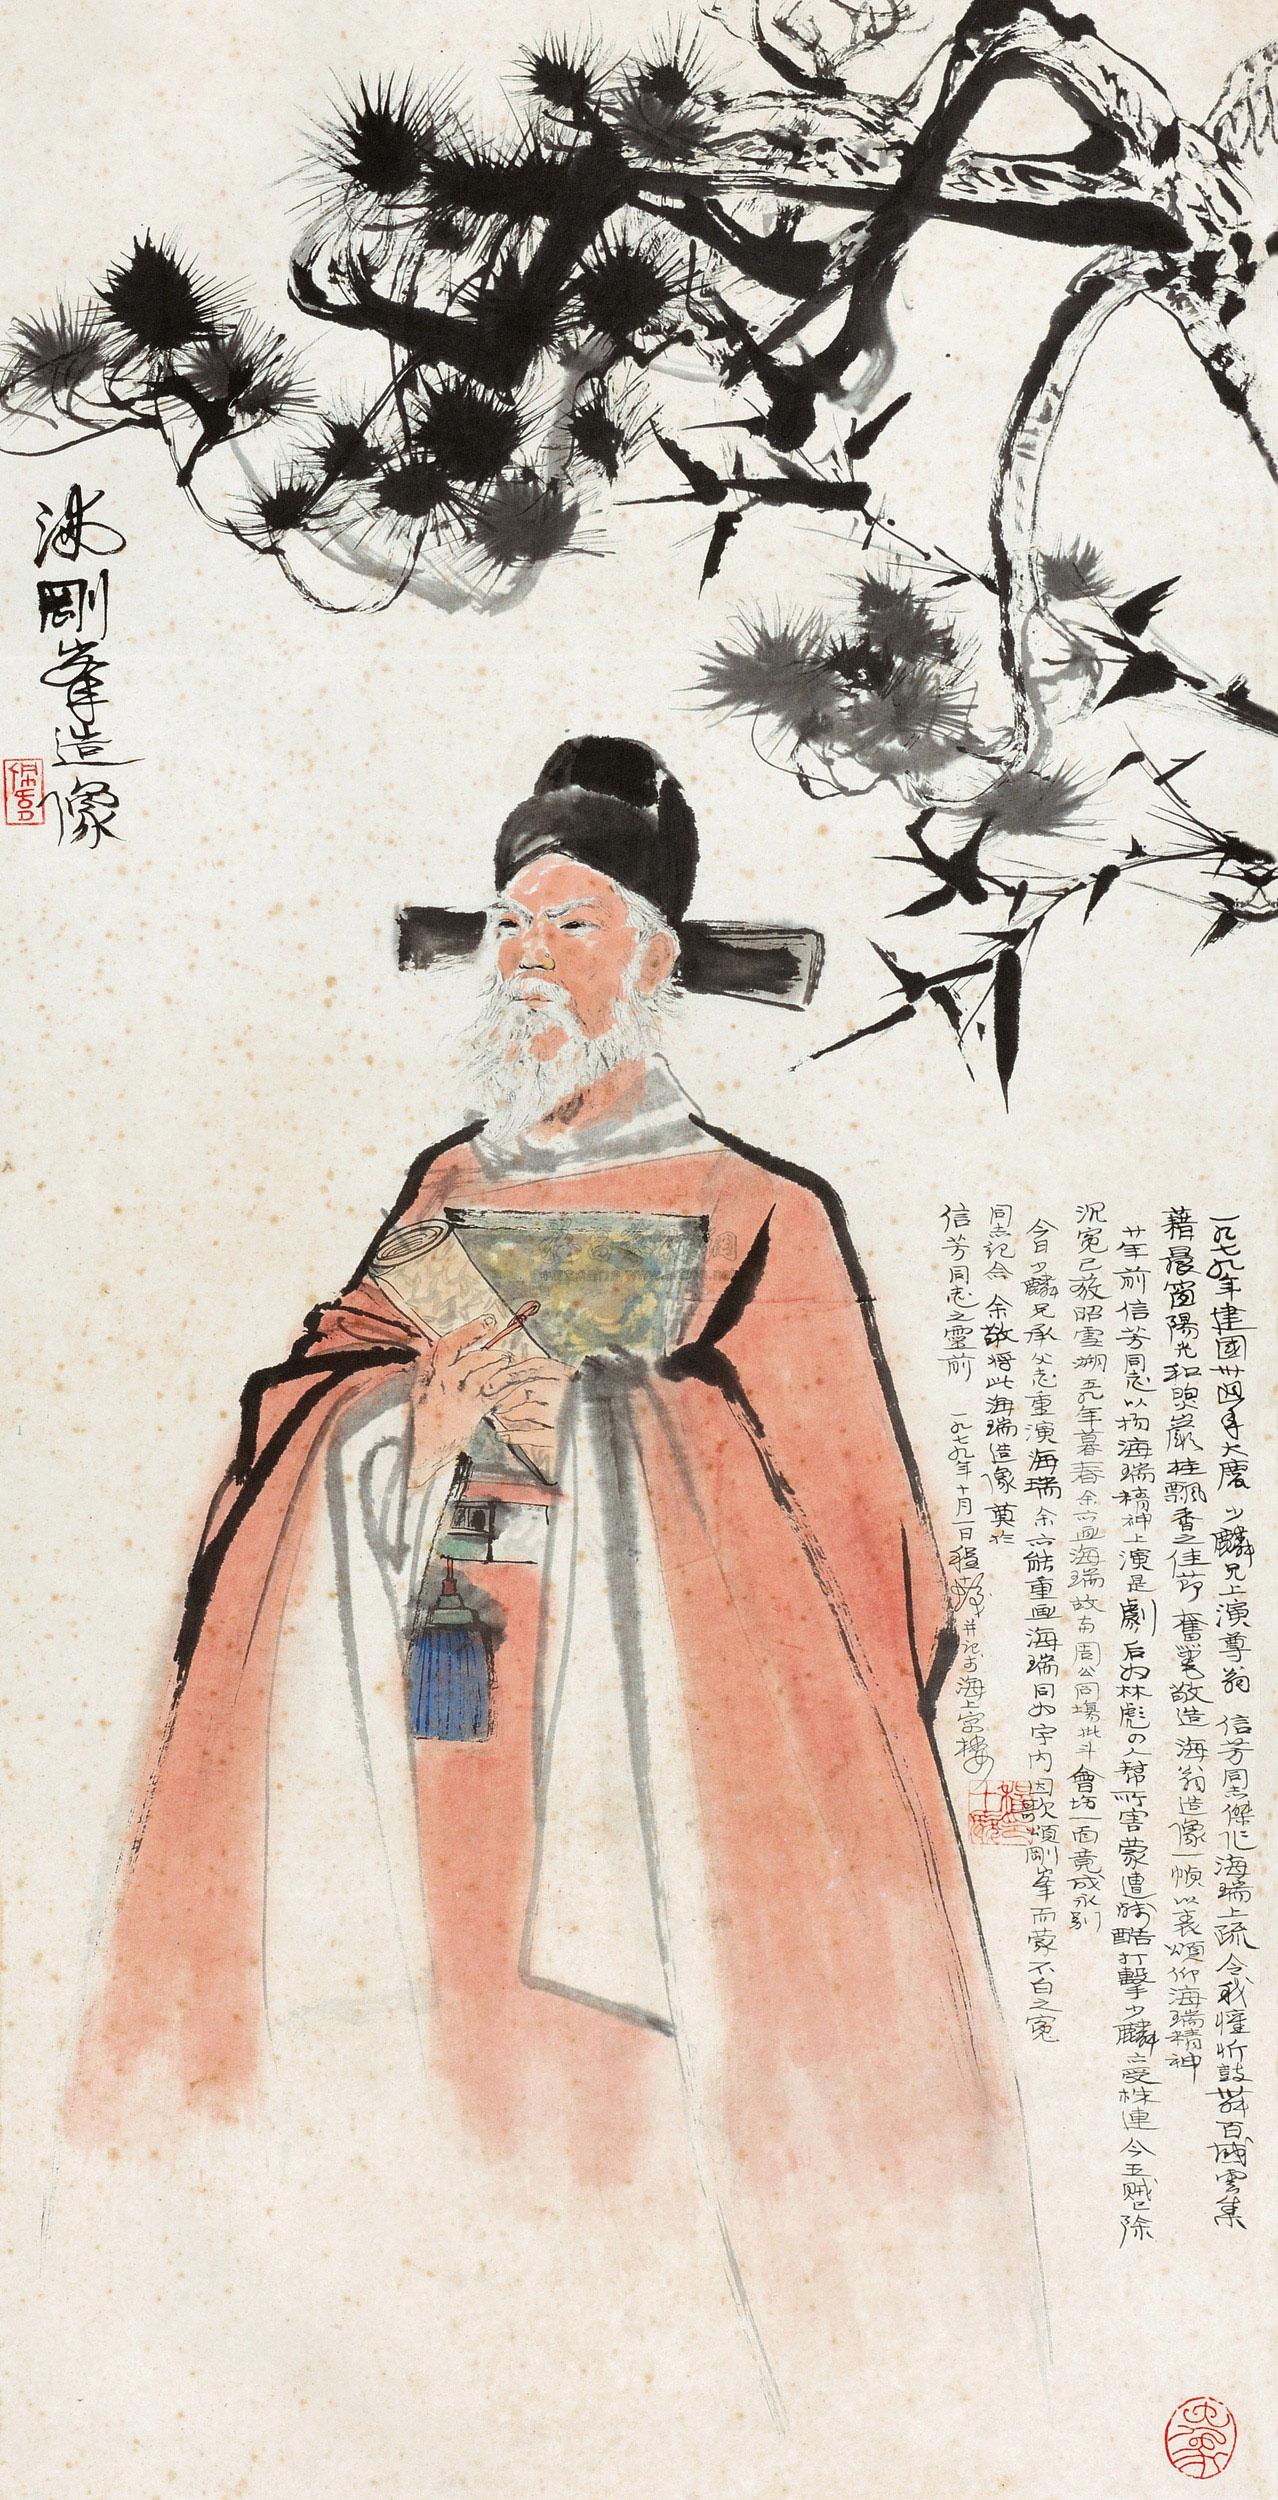 海剛峯造像
一九七九年建國卅週年大慶 少麟兄上演尊翁 信芳同志傑作海瑞上疏 令我懽忻鼓舞 百感雲集
藉晨窗陽光和煦嚴桂飄香之佳節 奮筆敬造海翁造像一幀以表頌仰海瑞精神
廿年前信芳同志以揚海瑞精神上演是劇 后为林彪四人幫所害蒙遭殘酷打擊 少麟亦受株連 今五賊已除
沉寃已获昭雪 溯五九年暮春余亦画海瑞故与周公同場批斗會場一面竟成永别
今日少麟兄承父志重演海瑞 余亦能重画海瑞 同为宇内因歌頌剛峯而蒙不白之寃
同志記念 余敬將此海瑞造像奠於
信芳同志之靈前 一九七九年十月一日程十髮并記于海上樓